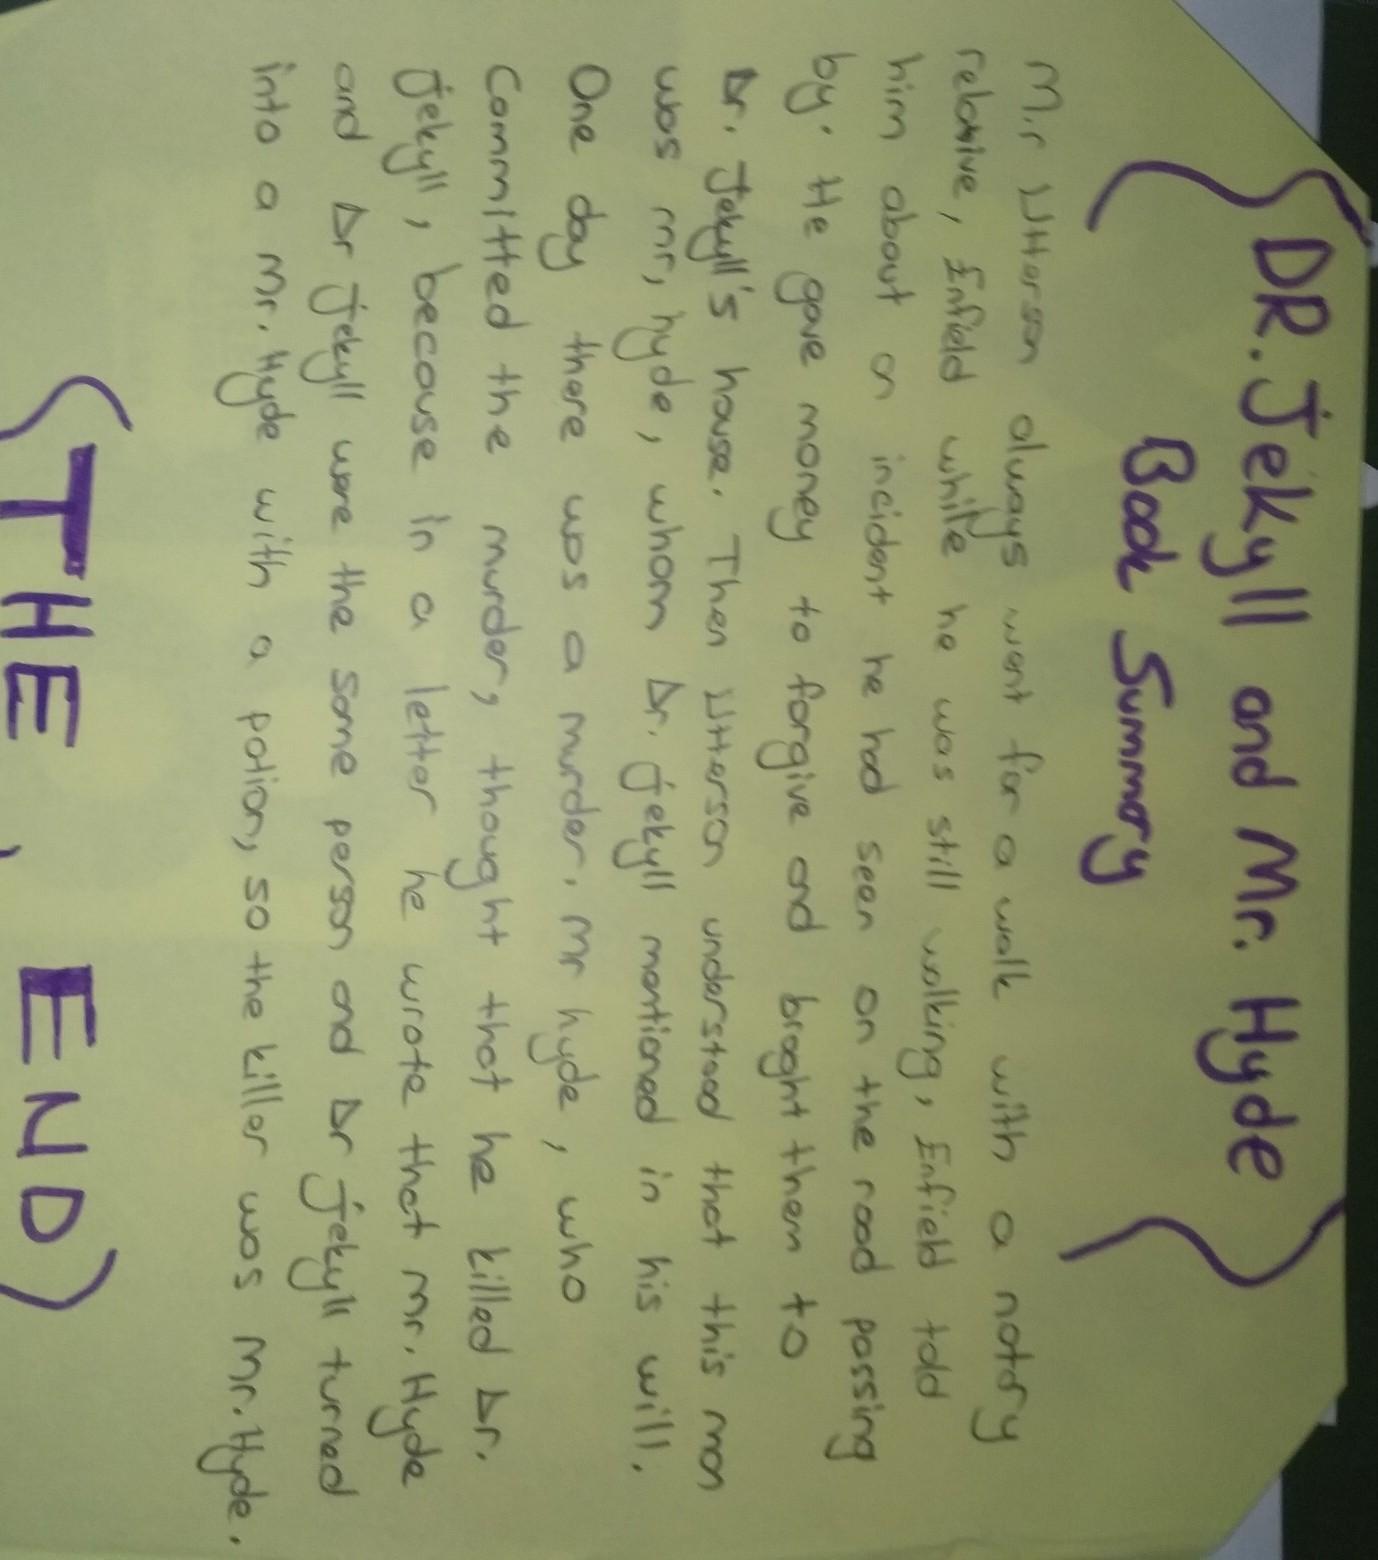 DR. Jekyll and Mr. Hyde
Book Summary
M.r Utterson always went for a walk with a notary
relative, Enfield while he was still walking, Enfield told
him about an incident he had seen on the road passing
by. He gave money to forgive and broght them to
Dr. Jekyll's house. Then Utterson understood that this man
was mr, hyde, whom Dr. Jekyll mentioned in his will.
One day there was a murder. Mr hyde, who
Committed the murder, thought that he killed Dr.
Jekyll, because in a letter he wrote that Mr. Hyde
and Dr Jekyll were the same person and Dr Jekyll turned
into a Mr. Hyde with a potion, so the killer was Mr. Hyde.
THE, END